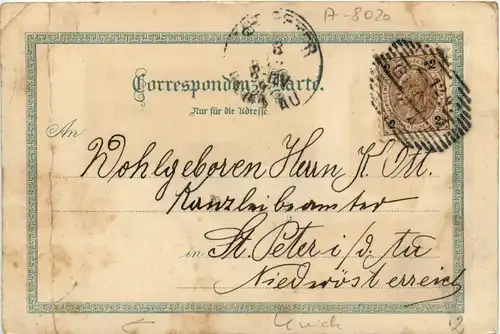 A-8020
ST. PETER
AU
2 2
Correspondenz-Karte.
Nur für die Adresse.
An
Wohlgeboren Herrn K. Ott.
Kanzleibeamter
in St. Peter i/d. Au
Niederösterreich